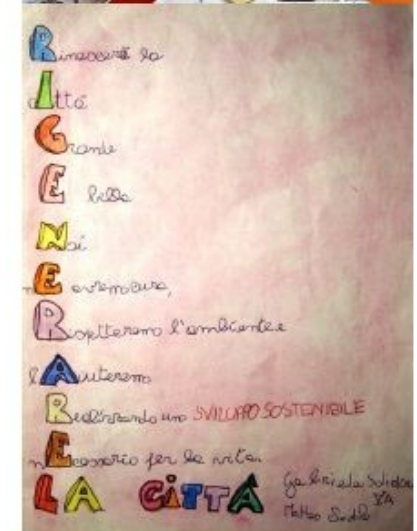 Rinascerà la
cittá
Grande
E bella
Noi
nE avremo cura,
Rispetteremo l'ambiente e
l'Aiuteremo
Realizzando uno SVILUPPO SOSTENIBILE
nEcessario per la vita.
LA CITTÁ
Gabriele
VA
Matteo